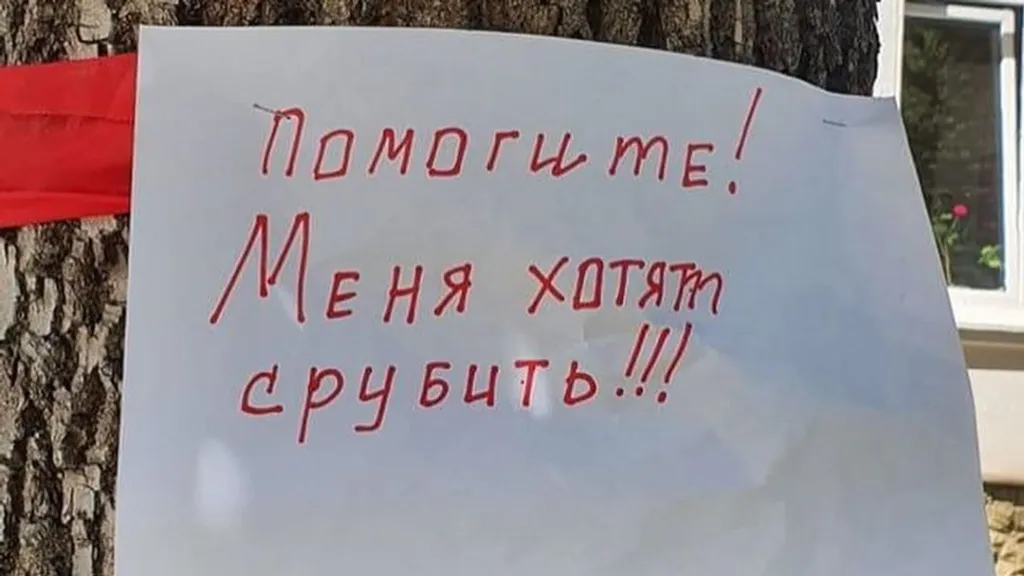 Помогите!
Меня хотят
срубить!!!